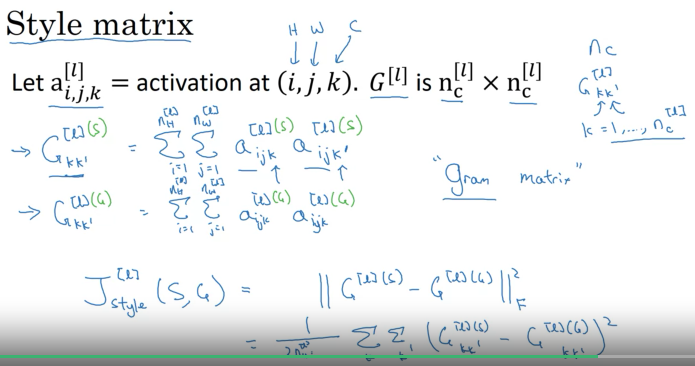 Style matrix
H W C
Let a[l]i,j,k = activation at (i, j, k). G[l] is nc[l] × nc[l]
nc
G[l]kk'
k = 1, ..., nc[l]
→ G[l](S)kk' = Σ i=1 nH[l] Σ j=1 nW[l] a[l](S)ijk a[l](S)ijk'
"Gram matrix"
→ G[l](G)kk' = Σ i=1 nH[l] Σ j=1 nW[l] a[l](G)ijk a[l](G)ijk
J[l]style (S, G) = || G[l](S) - G[l](G) ||²F
= 1 Σ Σ (G[l](S)kk' - G[l](G)kk')²